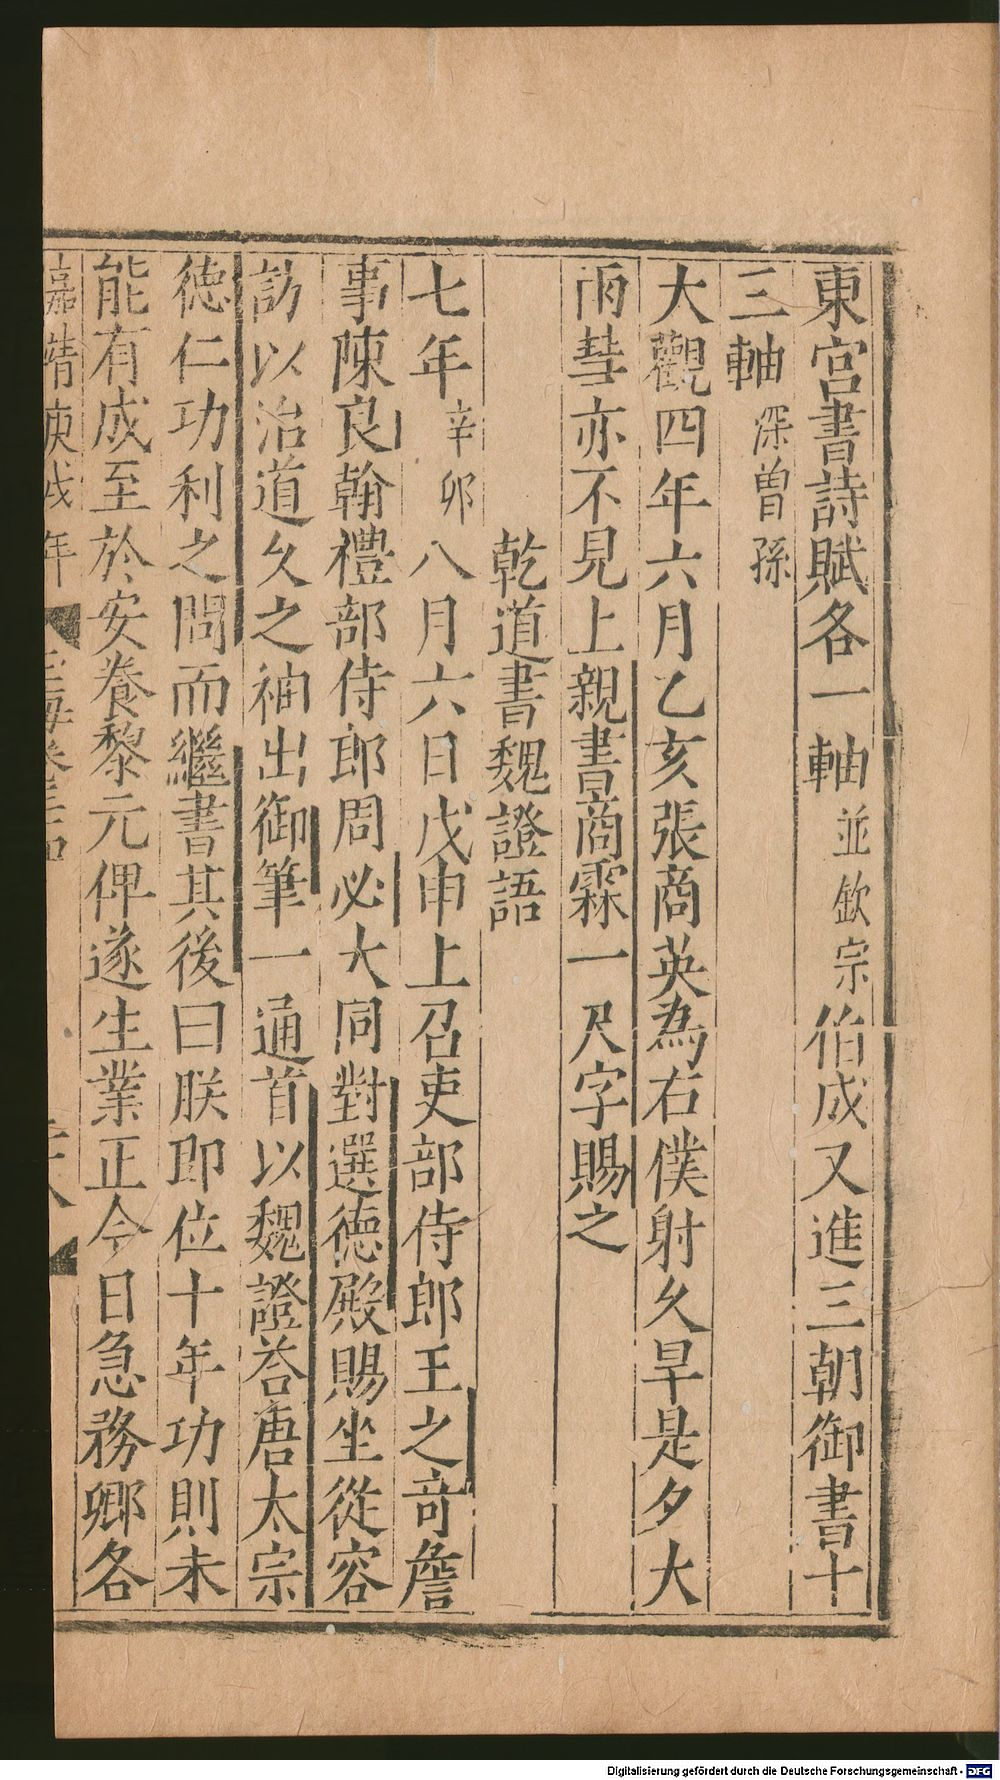 東宮書詩賦各一軸並欽宗伯成又進三朝御書十
三軸深曽孫
大觀四年六月乙亥張商英為右僕射久旱是夕大
雨彗亦不見上親書商霖一尺字賜之
乾道書魏證語
七年辛卯八月六日戊申上召吏部侍郎王之竒詹
事陳良翰禮部侍郎周必大同對選德殿賜坐從容
訪以治道久之袖出御筆一通首以魏證荅唐太宗
徳仁功利之問而繼書其後曰朕即位十年功則未
能有成至於安養黎元俾遂生業正今日急務卿各
嘉靖庚戌年
玉海卷三十四
二十八
Digitalisierung gefördert durch die Deutsche Forschungsgemeinschaft - DFG